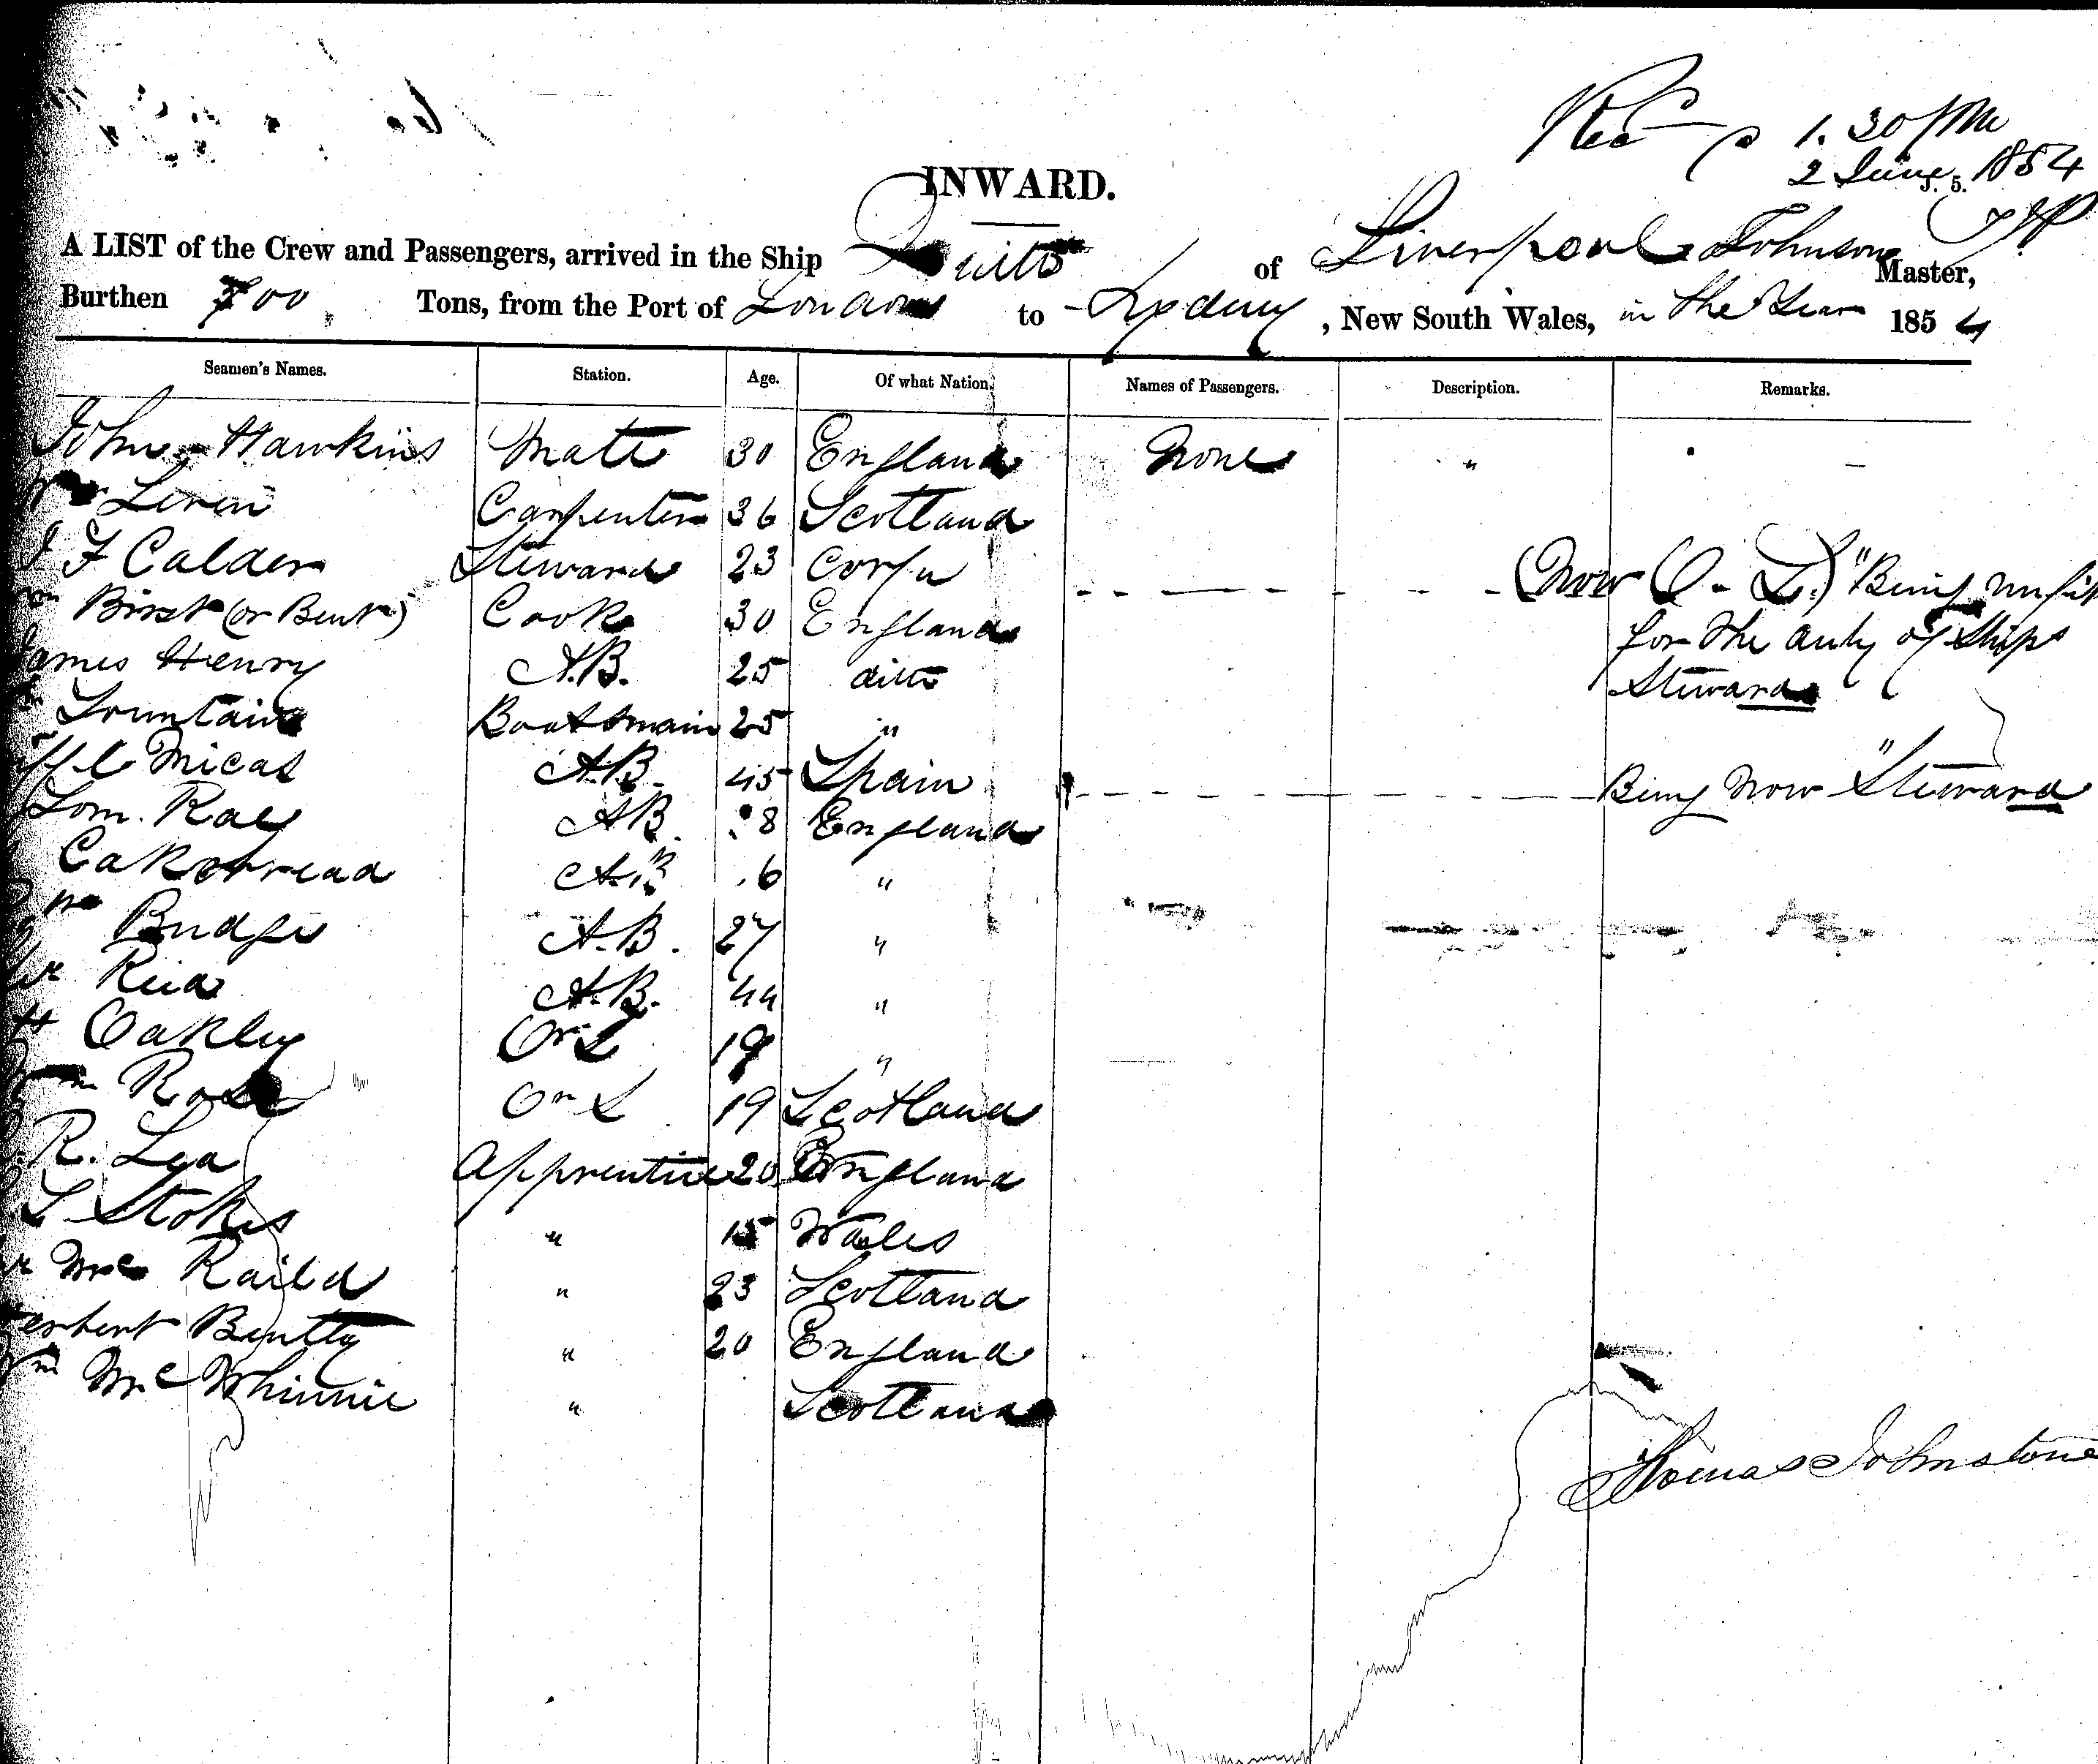 Rec 1.30 PM
2 June 1854
INWARD.
J. 5.
A LIST of the Crew and Passengers, arrived in the Ship Quito of Liverpool Johnson Master,
Burthen 700 Tons, from the Port of London to Sydney, New South Wales, in the Year 1854
Seamen's Names. Station. Age. Of what Nation. Names of Passengers. Description. Remarks.
John Hawkins Mate 30 England None " -
Carpenter 36 Scotland
J F Calder Steward 23 Corfu (Now O.S.) "Being unfit
Birst (or Bent) Cook 30 England for the duty of Ships
James Henry A.B. 25 ditto Steward
Fountain Boatswain 25 "
Micas A.B. 45 Spain Being Now "Steward
Rae A.B. 8 England
Cakebread A.B. 6 "
Wm Budge A.B. 27 "
Reid A.B. 44 "
H Oakley Or S 19 "
Rose Or S 19 Scotland
R. Lea Apprentice 20 England
S Stokes " 15 Wales
Mc Raild " 23 Scotland
Herbert Bently " 20 England
Wm McWhinnie " Scotland
Thomas Johnstone